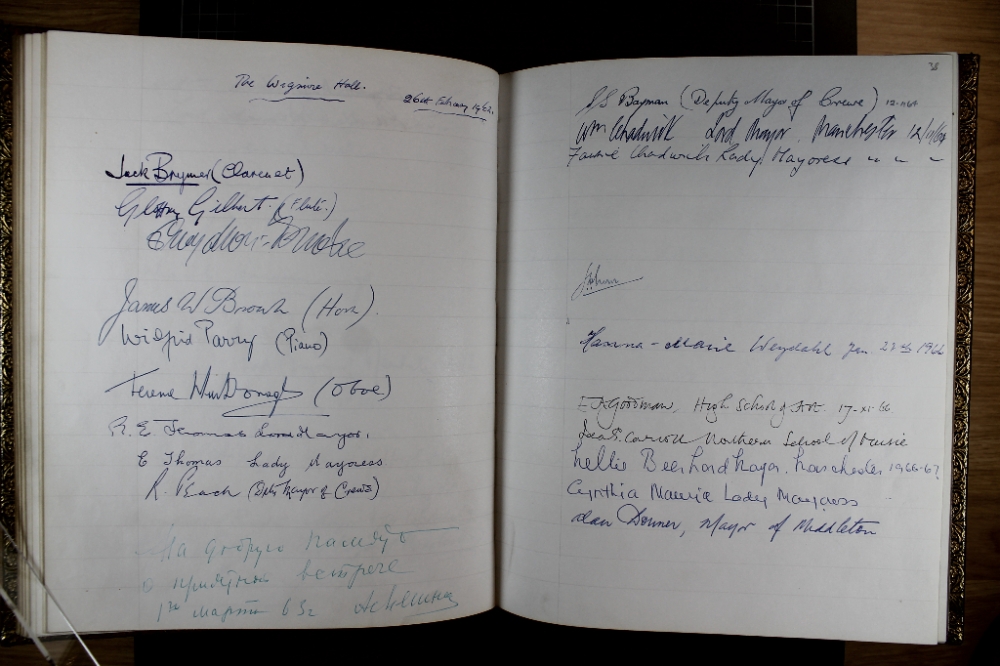 The Wigmore Hall.
26th February 1962.
Jack Brymer (Clarinet)
Gilbert (Flute.)
James W Brown (Horn).
Wilfrid Parry (Piano)
Terence MacDonagh (Oboe)
R. E. Thomas Lord Mayor.
E Thomas Lady Mayoress
R. Peach (Dpty Mayor of Crewe)
На добрую память
о приятной встрече
1го марта 63г
38
Bayman (Deputy Mayor of Crewe)
Wm Chadwick Lord Mayor. Manchester
Chadwick Lady Mayoress " " "
Hanna-Marie Weydahl Jan. 23th 1966
Goodman, High School of Art. 17-XI-66
Ida G. Carroll Northern School of Music
Nellie Beer Lord Mayor. Manchester 1966-67
Cynthia Lady Mayoress
Alan Mayor of Middleton